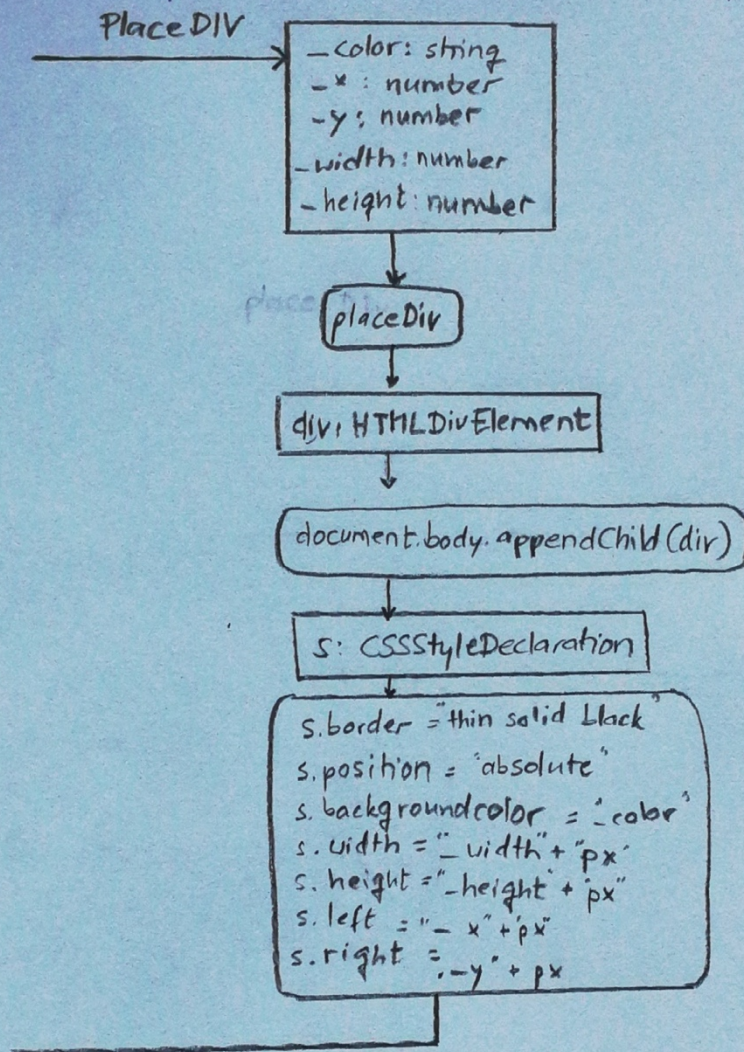 PlaceDIV
_color: string
_x: number
_y: number
_width: number
_height: number
place
placeDiv
div: HTMLDivElement
document.body.appendChild(div)
s: CSSStyleDeclaration
s.border = "thin solid black"
s.position = "absolute"
s.backgroundcolor = "_color"
s.width = "_width" + "px"
s.height = "_height" + "px"
s.left = "_x" + "px"
s.right = "_y" + px